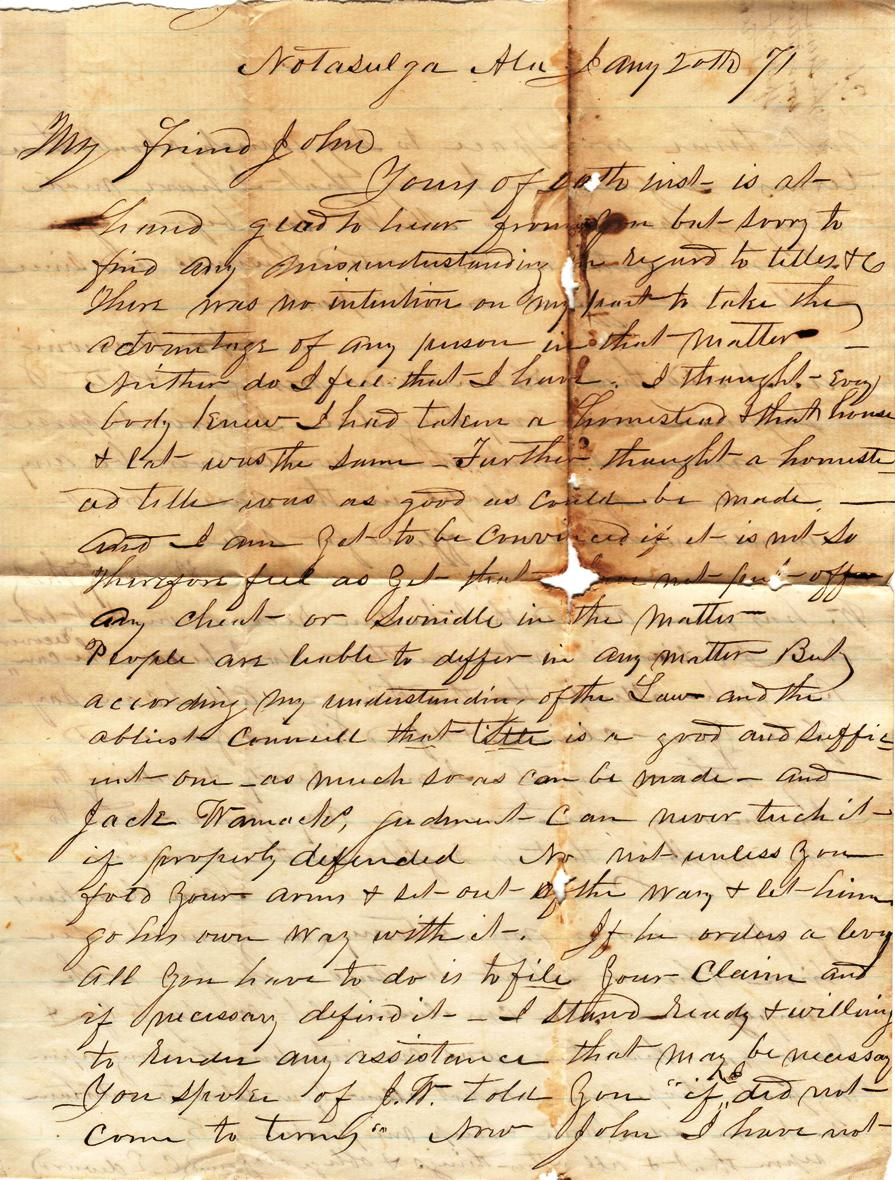 Notasulga Ala Jany 20th 71
My friend John
Yours of inst- is at-
hand glad to hear from you but sorry to
find any misunderstanding in regard to titles &C
There was no intention on my part to take the
advantage of any person in that matter -
Neither do I feel that I have. I thought- Every
body knew I had taken a homestead & that house
& lot was the same - Further thought a homeste
ad title was as good as could be made. -
and I am yet- to be convinced if it is not- so
therefore feel as yet that- have not- put- off
any cheat- or swindle in the matter
People are liable to differ in any matter But
according my understandin, of the Law and the
ablest Councill that title is a good and suffic
ient- one - as much so as can be made - and
Jack Wamack's, judment- Can never tuch it-
if properly defended No not unless you
fold your arms & set- out of the way & let- him
go his own way with it-. If he orders a levy
All you have to do is to file your Claim and
if necessary defind it - I stand ready & willing
to render any assistance that may be necessay
You spoke of J.W. told you "if he did not-
come to terms" Now John I have not-